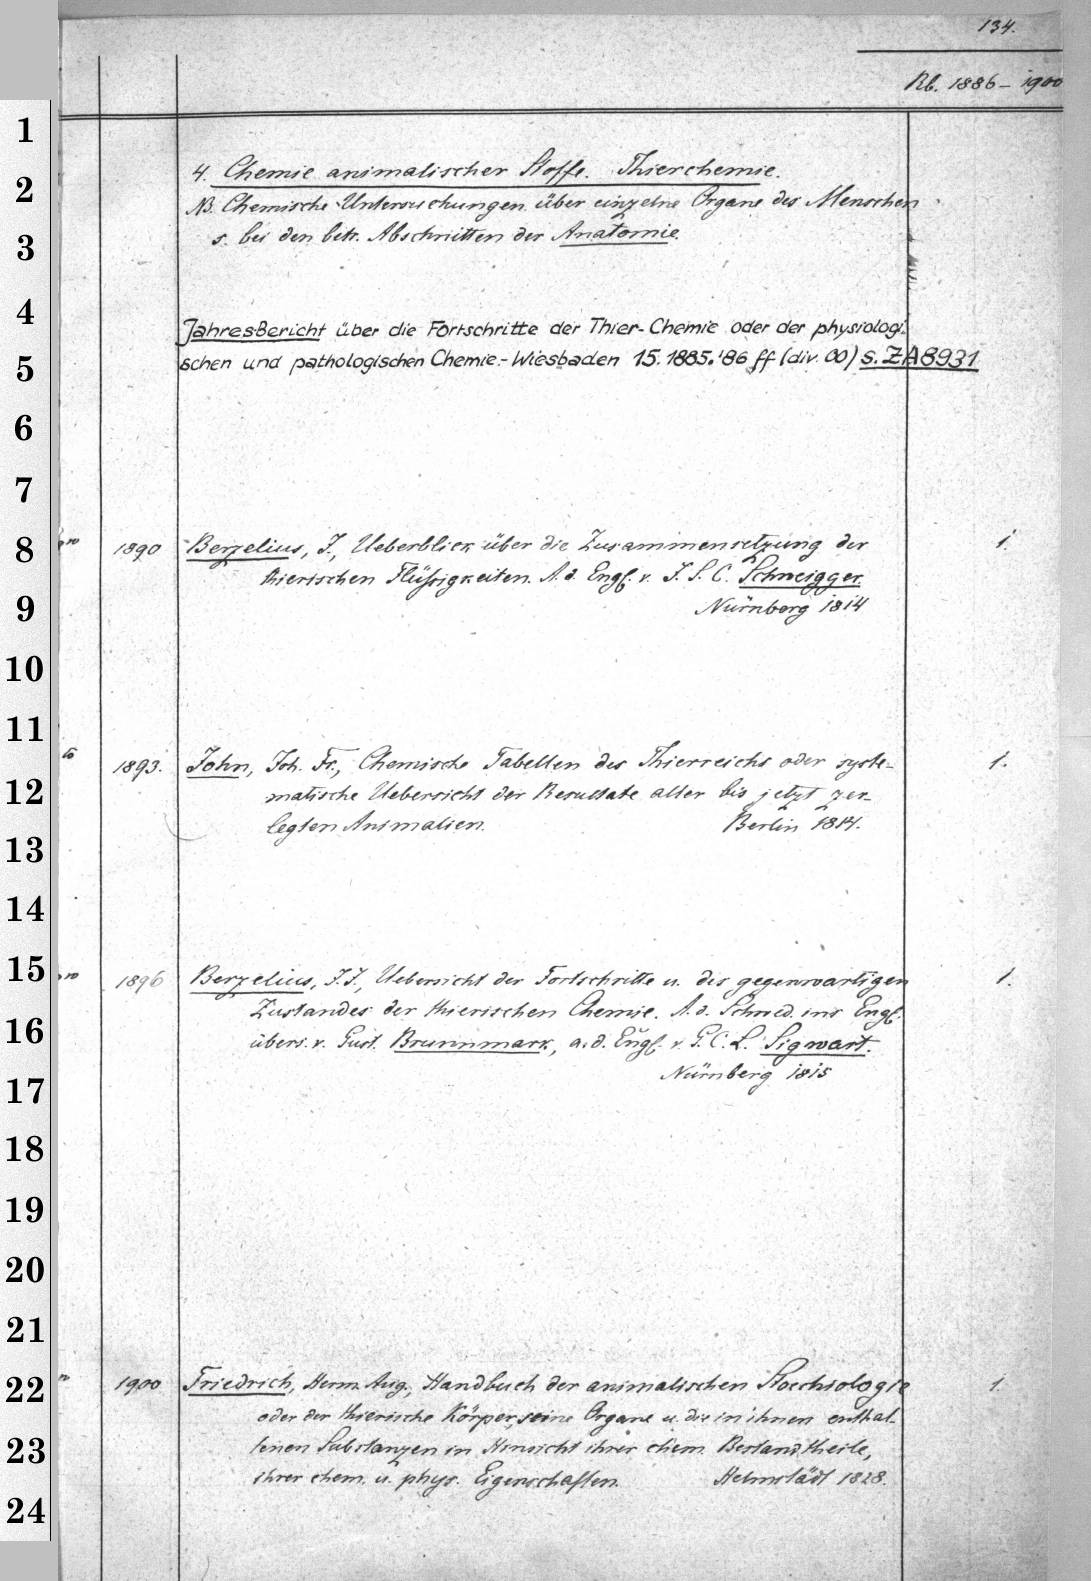 134.
Rb. 1886–1900
1
2
3
4
5
6
7
8
9
10
11
12
13
14
15
16
17
18
19
20
21
22
23
24
4. Chemie animalischer Stoffe. Thierchemie.
NB. Chemische Untersuchungen über einzelne Organe des Menschen
s. bei den betr. Abschnitten der Anatomie.
Jahres-Bericht über die Fortschritte der Thier-Chemie oder der physiologi-
schen und pathologischen Chemie.- Wiesbaden 15. 1885.'86 ff (div. OO) s. ZA 8931
1890 Berzelius, J., Ueberblick über die Zusammensetzung der 1.
thierischen Flüssigkeiten. A. d. Engl. v. J. S. C. Schweigger.
Nürnberg 1814
1893. John, Joh. Fr., Chemische Tabellen des Thierreichs oder syste- 1.
matische Uebersicht der Resultate aller bis jetzt zer-
legten Animalien. Berlin 1814.
1896 Berzelius, J. J., Uebersicht der Fortschritte u. des gegenwartigen 1.
Zustandes der thierischen Chemie. A. d. Schwed. ins Engl.
übers. v. Gust. Brunnmark, a. d. Engl. v. G. C. L. Sigwart.
Nürnberg 1815
1900 Friedrich, Herm. Aug., Handbuch der animalischen Stoechiologie 1.
oder der thierische Körper, seine Organe u. die in ihnen enthal-
tenen Substanzen in Hinsicht ihrer chem. Bestandtheile,
ihrer chem. u. phys. Eigenschaften. Helmstädt 1828.